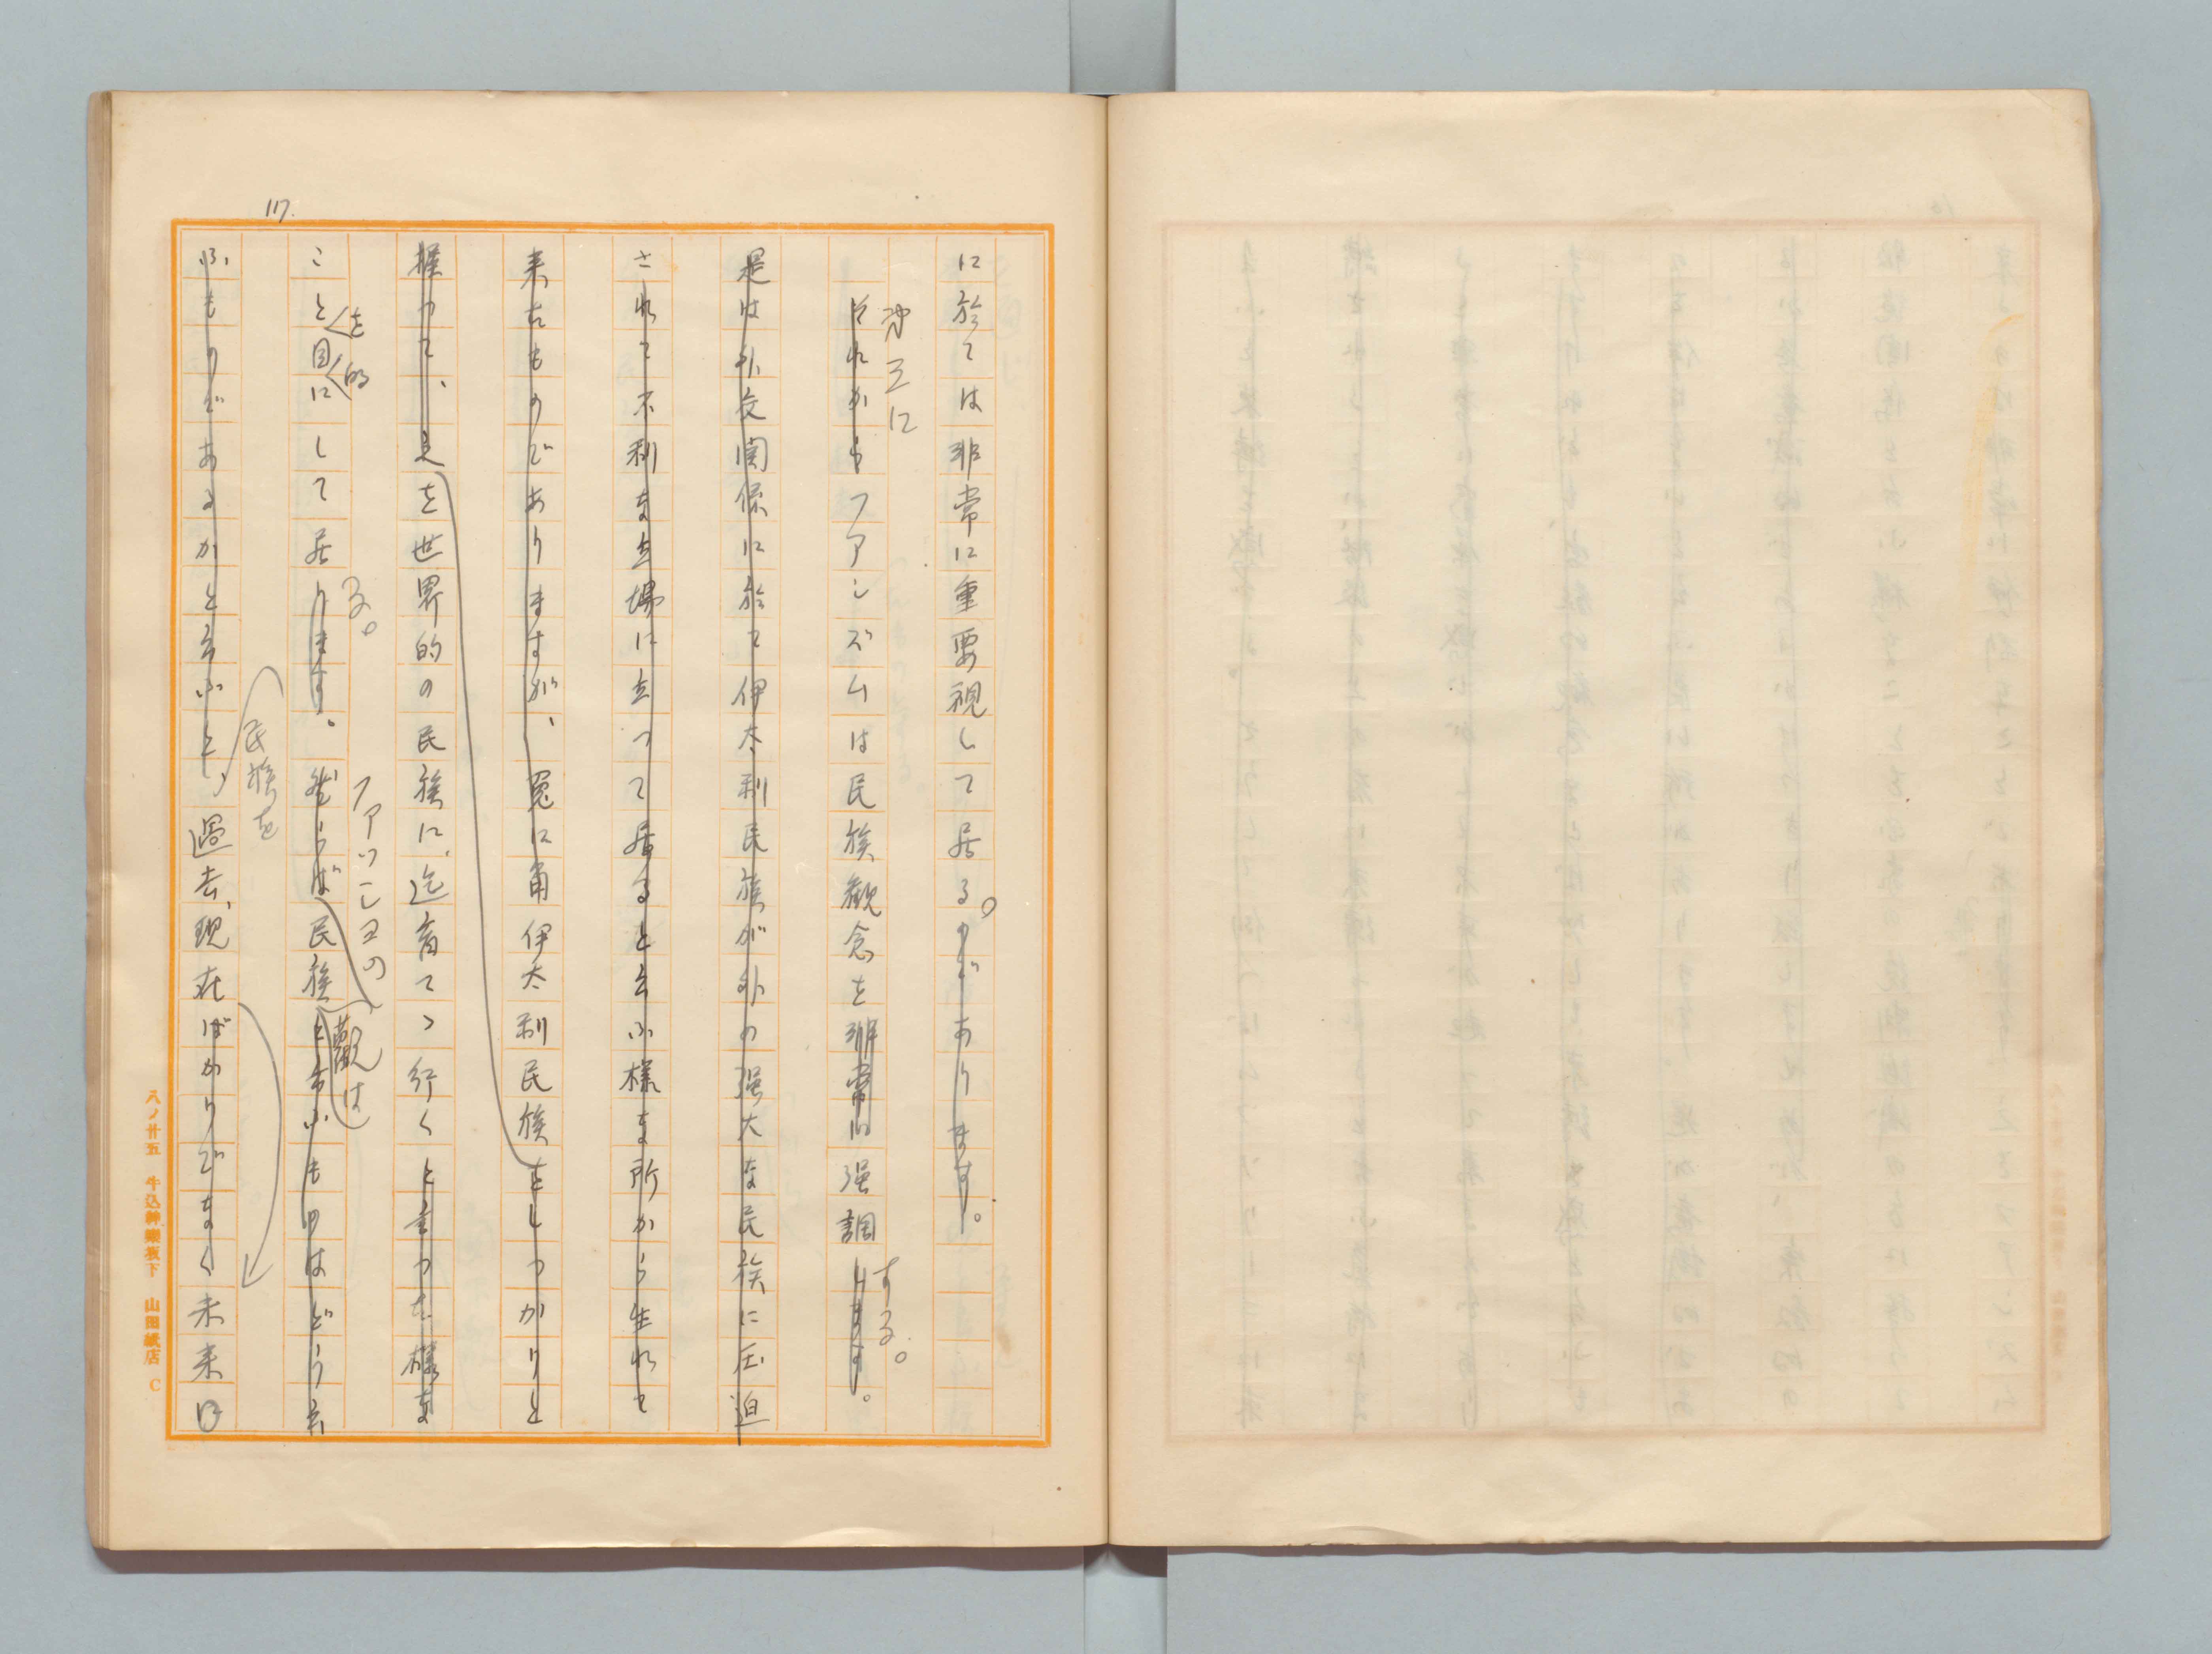 117.
に於ては非常に重要視して居る。のであります。
第三に
それからファシズムは民族観念を非常に强調します。
する。
是は外交関係に於て伊太利民族が外の强大な民族に圧迫
されて不利な立場に立つて居ると云ふ様な所から生れて
来たものでありますが、兎に角伊太利民族をしつかりと
握つて、是を世界的の民族に迄育てゝ行くと言つた様な
を 的
こと目にして居ります。然らば民族と云ふものはどう云
る。
ファッショの
観は
ふものであるかと云ふと、過去、現在ばかりでなく未来
民族を
八ノ廿五 牛込神樂坂下 山田紙店 C